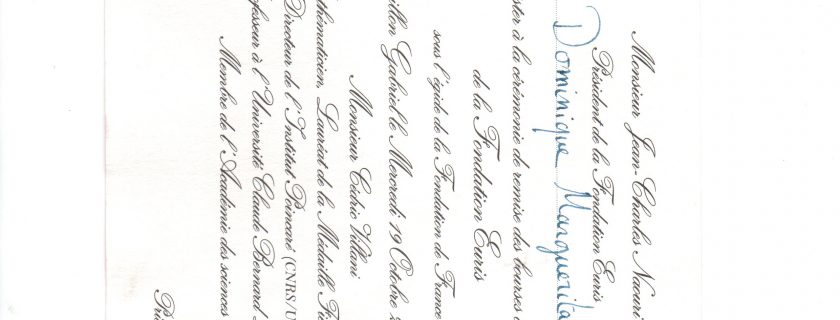 Monsieur Jean-Charles Naouri
Président de la Fondation Euris
Dominique Marguerita
ster à la cérémonie de remise des bourses
de la Fondation Euris
sous l'égide de la Fondation de France
illon Gabriel le Mercredi 19 Octobre
Monsieur Cédric Villani
thématicien, Lauréat de la Médaille Fi
Directeur de l'Institut Poincaré (CNRS/U
fesseur à l'Université Claude Bernard
Membre de l'Académie des sciences